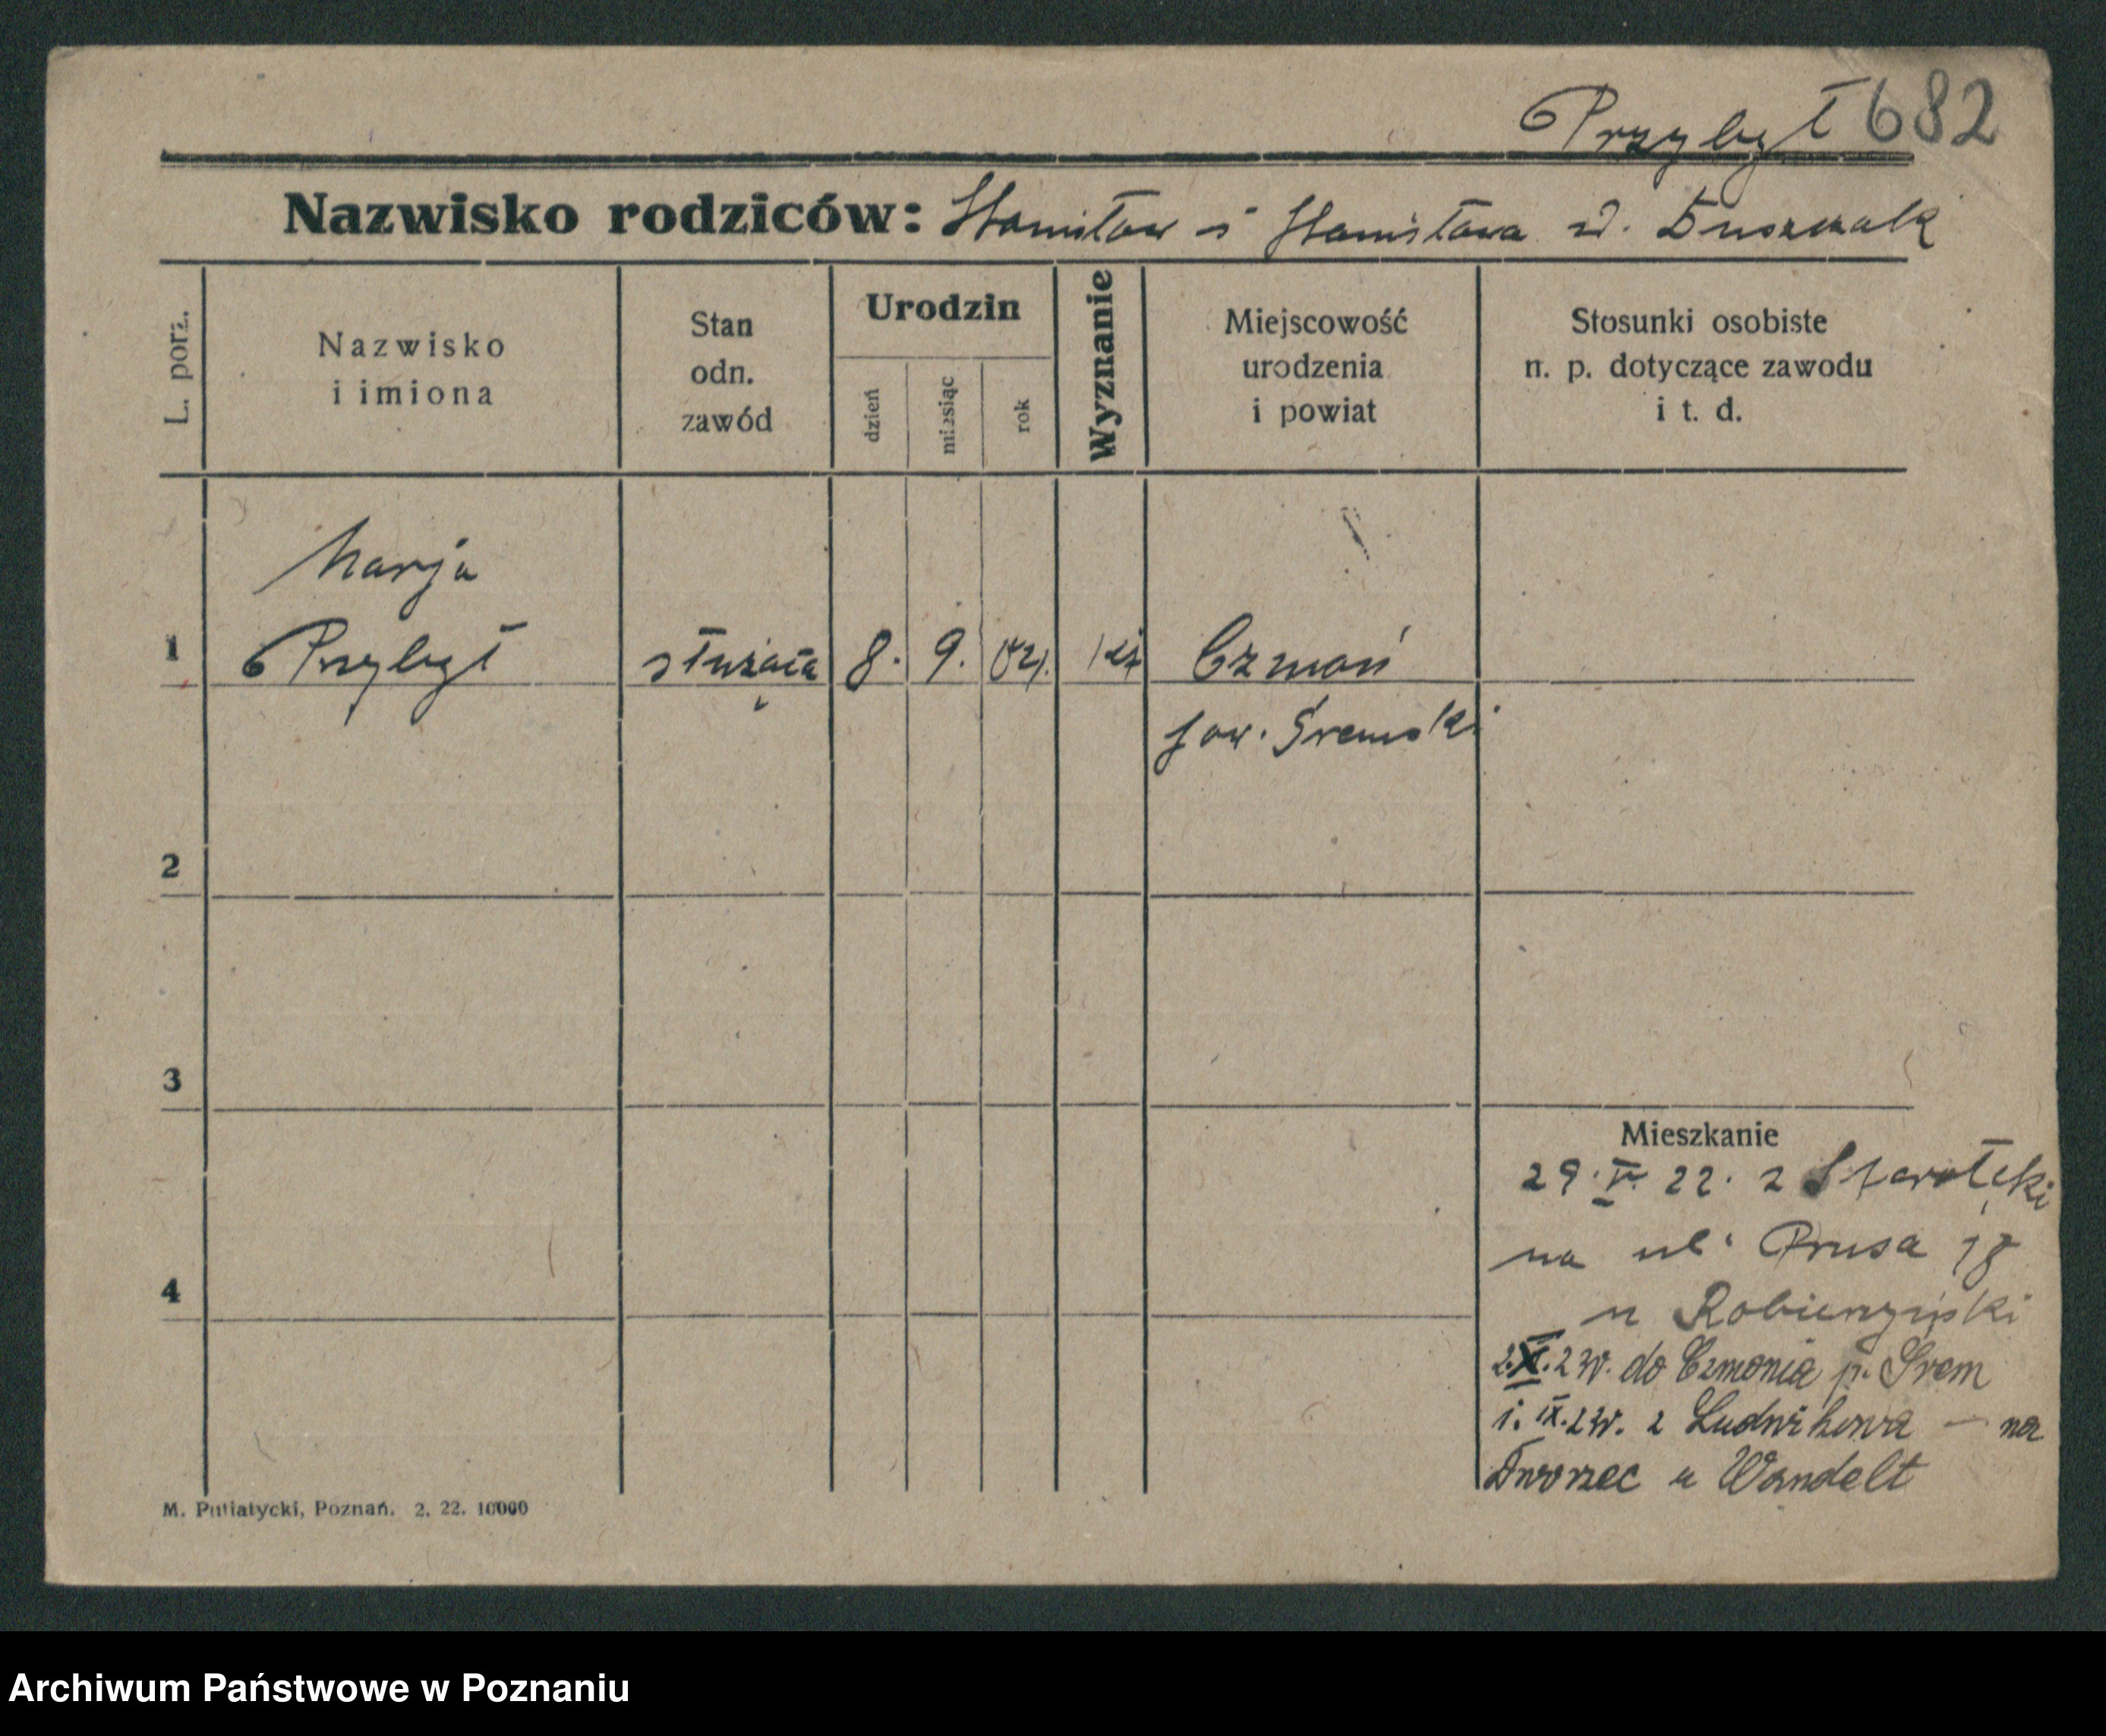 Przybył 682
Nazwisko rodziców: Stanisław i Stanisława ur. Duszczak
L. porz.
Nazwisko
i imiona
Stan
odn.
zawód
Urodzin
dzień
miesiąc
rok
Wyznanie
Miejscowość
urodzenia
i powiat
Stosunki osobiste
n. p. dotyczące zawodu
i t. d.
Marja
1 Przybył służąca 8. 9. 04. kat Czmoń
pow. Śremski
2
3
4
Mieszkanie
29.V.22. z Starołęki
na ul. Prusa 18
u Robierzyński
2.XI.23r. do Czmonia p. Śrem
1.IX.23r. z Ludwikowa — na
Dworzec u Wandelt
M. Putiatycki, Poznań. 2. 22. 10000
Archiwum Państwowe w Poznaniu